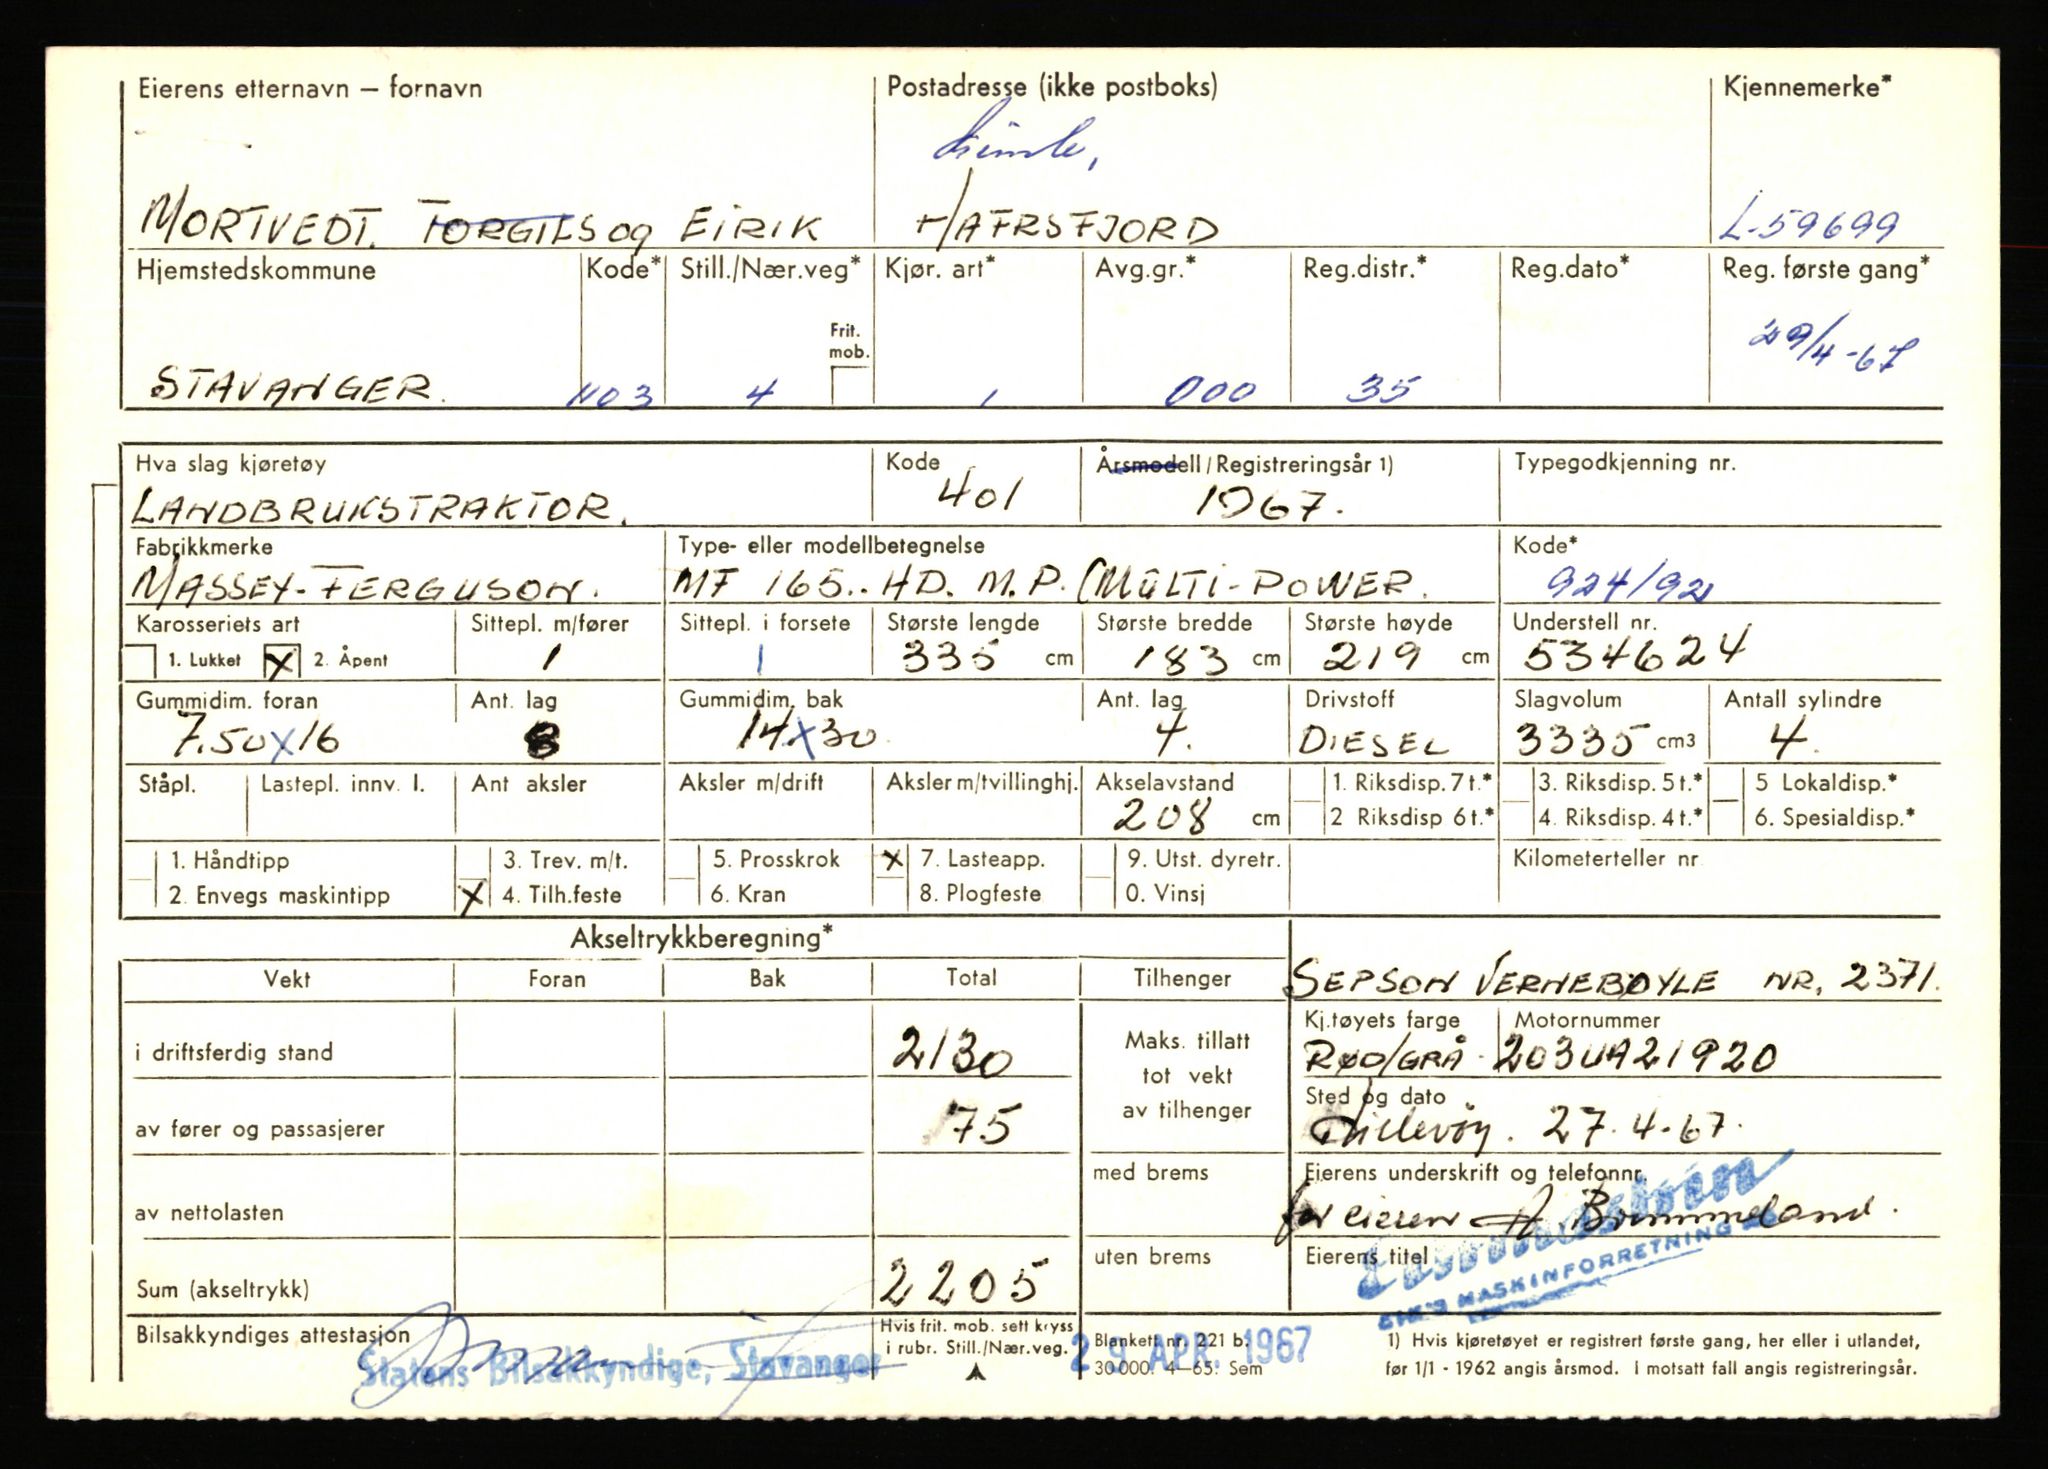 Eierens etternavn – fornavn Postadresse (ikke postboks) Kjennemerke*
MORTVEDT. TORGILS og EIRIK HAFRSFJORD L-59699
Hjemstedskommune Kode* Still./Nær.veg* Kjør. art* Avg.gr.* Reg.distr.* Reg.dato* Reg. første gang*
Frit. mob.
29/4-67
STAVANGER. 1103 4 1 000 35
Hva slag kjøretøy Kode Årsmodell/Registreringsår 1) Typegodkjenning nr.
LANDBRUKSTRAKTOR. 401 1967.
Fabrikkmerke Type- eller modellbetegnelse Kode*
MASSEY-FERGUSON. MF 165.. HD. M.P. (MULTI-POWER. 924/92
Karosseriets art Sittepl. m/fører Sittepl. i forsete Største lengde Største bredde Største høyde Understell nr.
1. Lukket X 2. Åpent 1 1 335 cm 183 cm 219 cm 534624
Gummidim. foran Ant. lag Gummidim. bak Ant. lag Drivstoff Slagvolum Antall sylindre
7.50x16 8 14x30 4. DIESEL 3335 cm3 4.
Ståpl. Lastepl. innv. l. Ant aksler Aksler m/drift Aksler m/tvillinghj. Akselavstand 1. Riksdisp. 7 t.* 3. Riksdisp. 5 t.* 5 Lokaldisp.*
208 cm 2 Riksdisp 6 t.* 4. Riksdisp. 4 t.* 6. Spesialdisp.*
1. Håndtipp 3. Trev. m/t. 5. Prosskrok X 7. Lasteapp. 9. Utst. dyretr. Kilometerteller nr
2. Envegs maskintipp X 4. Tilh.feste 6. Kran 8. Plogfeste 0. Vinsj
Akseltrykkberegning*
Vekt Foran Bak Total Tilhenger SEPSON VERNEBØYLE NR. 2371.
Kj.tøyets farge Motornummer
i driftsferdig stand 2130 Maks. tillatt tot vekt av tilhenger RØD/GRÅ 203UA21920
Sted og dato
av fører og passasjerer 75 27.4-67.
med brems Eierens underskrift og telefonnr.
av nettolasten for eieren A. Brummeland.
uten brems Eierens titel
EIK'S MASKINFORRETNING
Sum (akseltrykk) 2205
Bilsakkyndiges attestasjon Hvis frit. mob. sett kryss i rubr. Still./Nær.veg. Blankett nr. 221 b. 1) Hvis kjøretøyet er registrert første gang, her eller i utlandet,
Statens Bilsakkyndige, Stavanger 29 APR. 1967
30 000. 4–65. Sem før 1/1 - 1962 angis årsmod. I motsatt fall angis registreringsår.